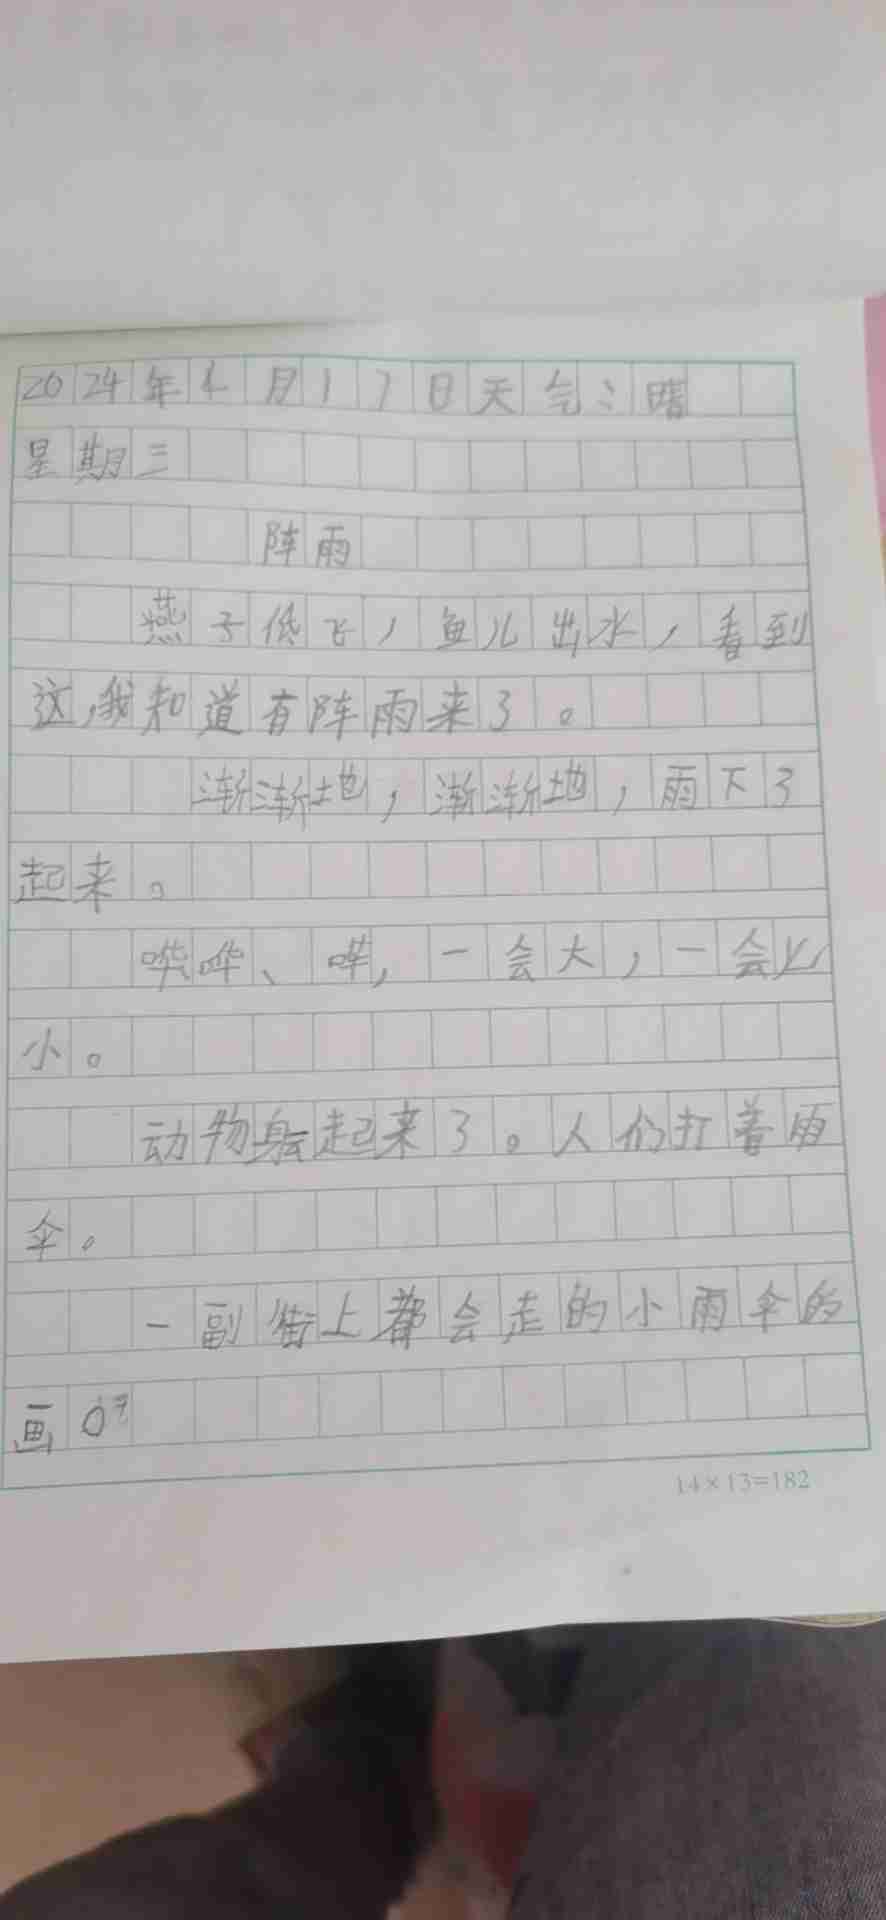 2024年4月17日天气:晴
星期三
阵雨
燕子低飞,鱼儿出水,看到
这,我知道有阵雨来了。
渐渐地,渐渐地,雨下了
起来。
哗哗、哗,一会大,一会
小。
动物起来了。人们打着雨
伞。
一副街上都会走的小雨伞的
画
14×13=182